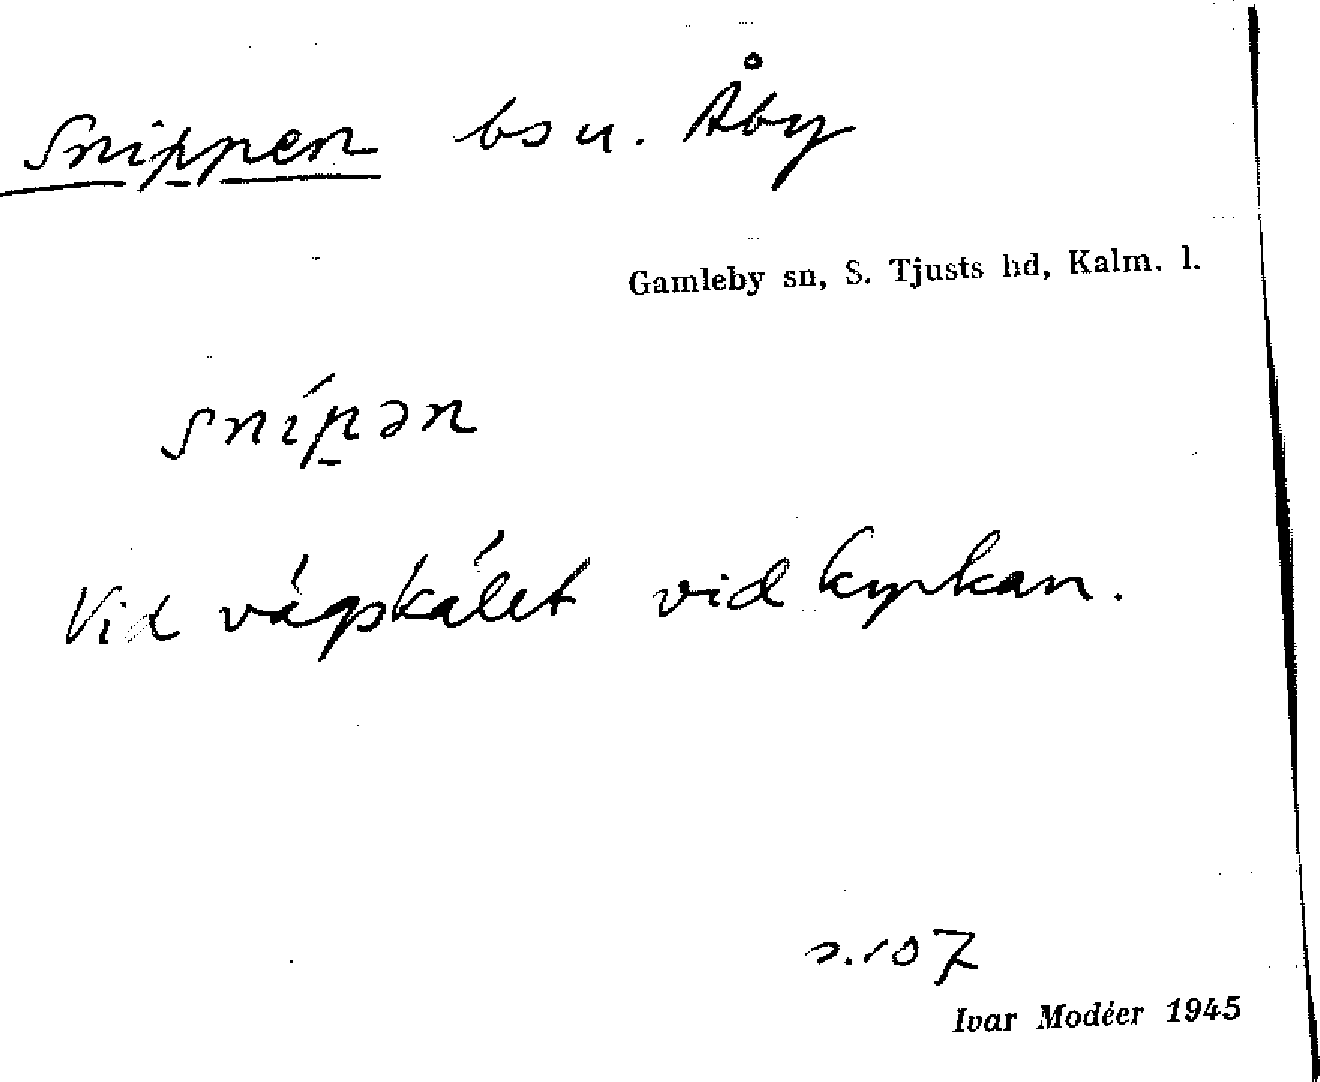 Snippen bs u. Åby
Gamleby sn, S. Tjusts hd, Kalm. l.
snípən
Vid vägskälet vid kyrkan.
s. 107
Ivar Modéer 1945